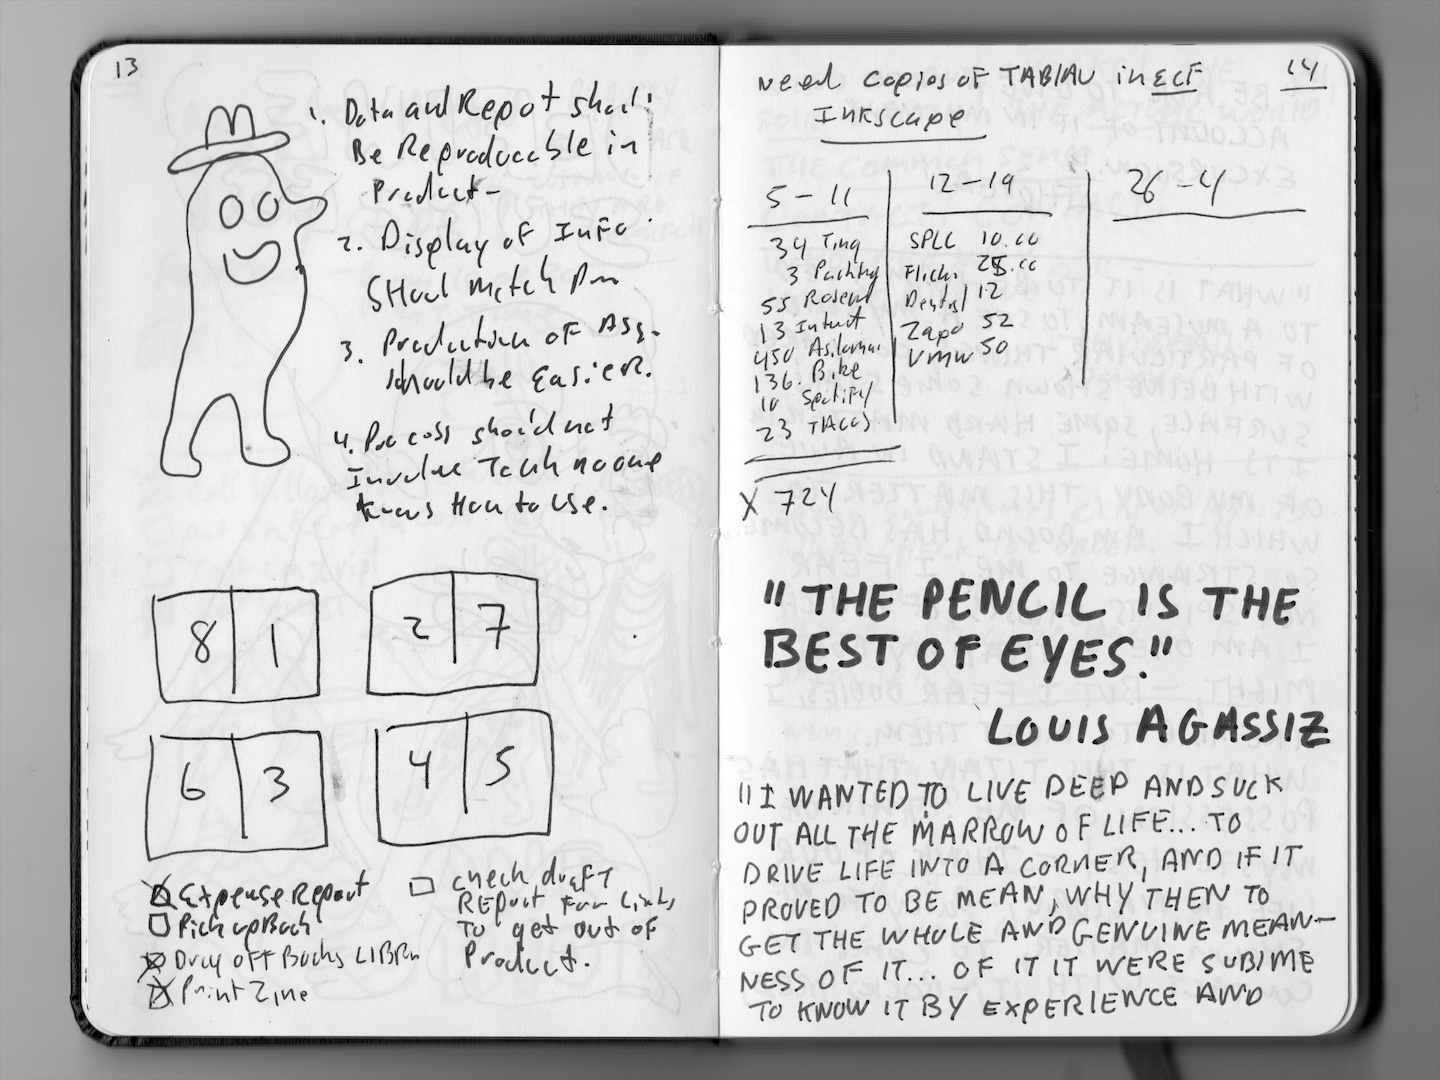 13
1. Data and Repot shoul
Be Reproduceable in
Product-
2. Display of Info
SHoul match
3. Production of Ass.
should be Easier.
4. Process should not
Involve Tech no one
knows How to use.
8 1
2 7
6 3
4 5
Expense Report
Pick up Book
Drop off Books LIBRA
Print Zine
check draft
REport For Links
To get out of
Product.
14
Need copies of TABLAU in ECF
Inkscape
5-11
34 Ting
3 Parking
55 Rosend
13 Intuit
450 Asilomar
136. Bike
10 Spotify
23 TIAccs
X 724
12-19
SPLC 10.00
Flickr 25.00
Dental 12
Zapo 52
Vmw 50
26-4
"THE PENCIL IS THE
BEST OF EYES."
LOUIS AGASSIZ
"I WANTED TO LIVE DEEP AND SUCK
OUT ALL THE MARROW OF LIFE... TO
DRIVE LIFE INTO A CORNER, AND IF IT
PROVED TO BE MEAN, WHY THEN TO
GET THE WHOLE AND GENUINE MEAN-
NESS OF IT... OF IT IT WERE SUBIME
TO KNOW IT BY EXPERIENCE AND